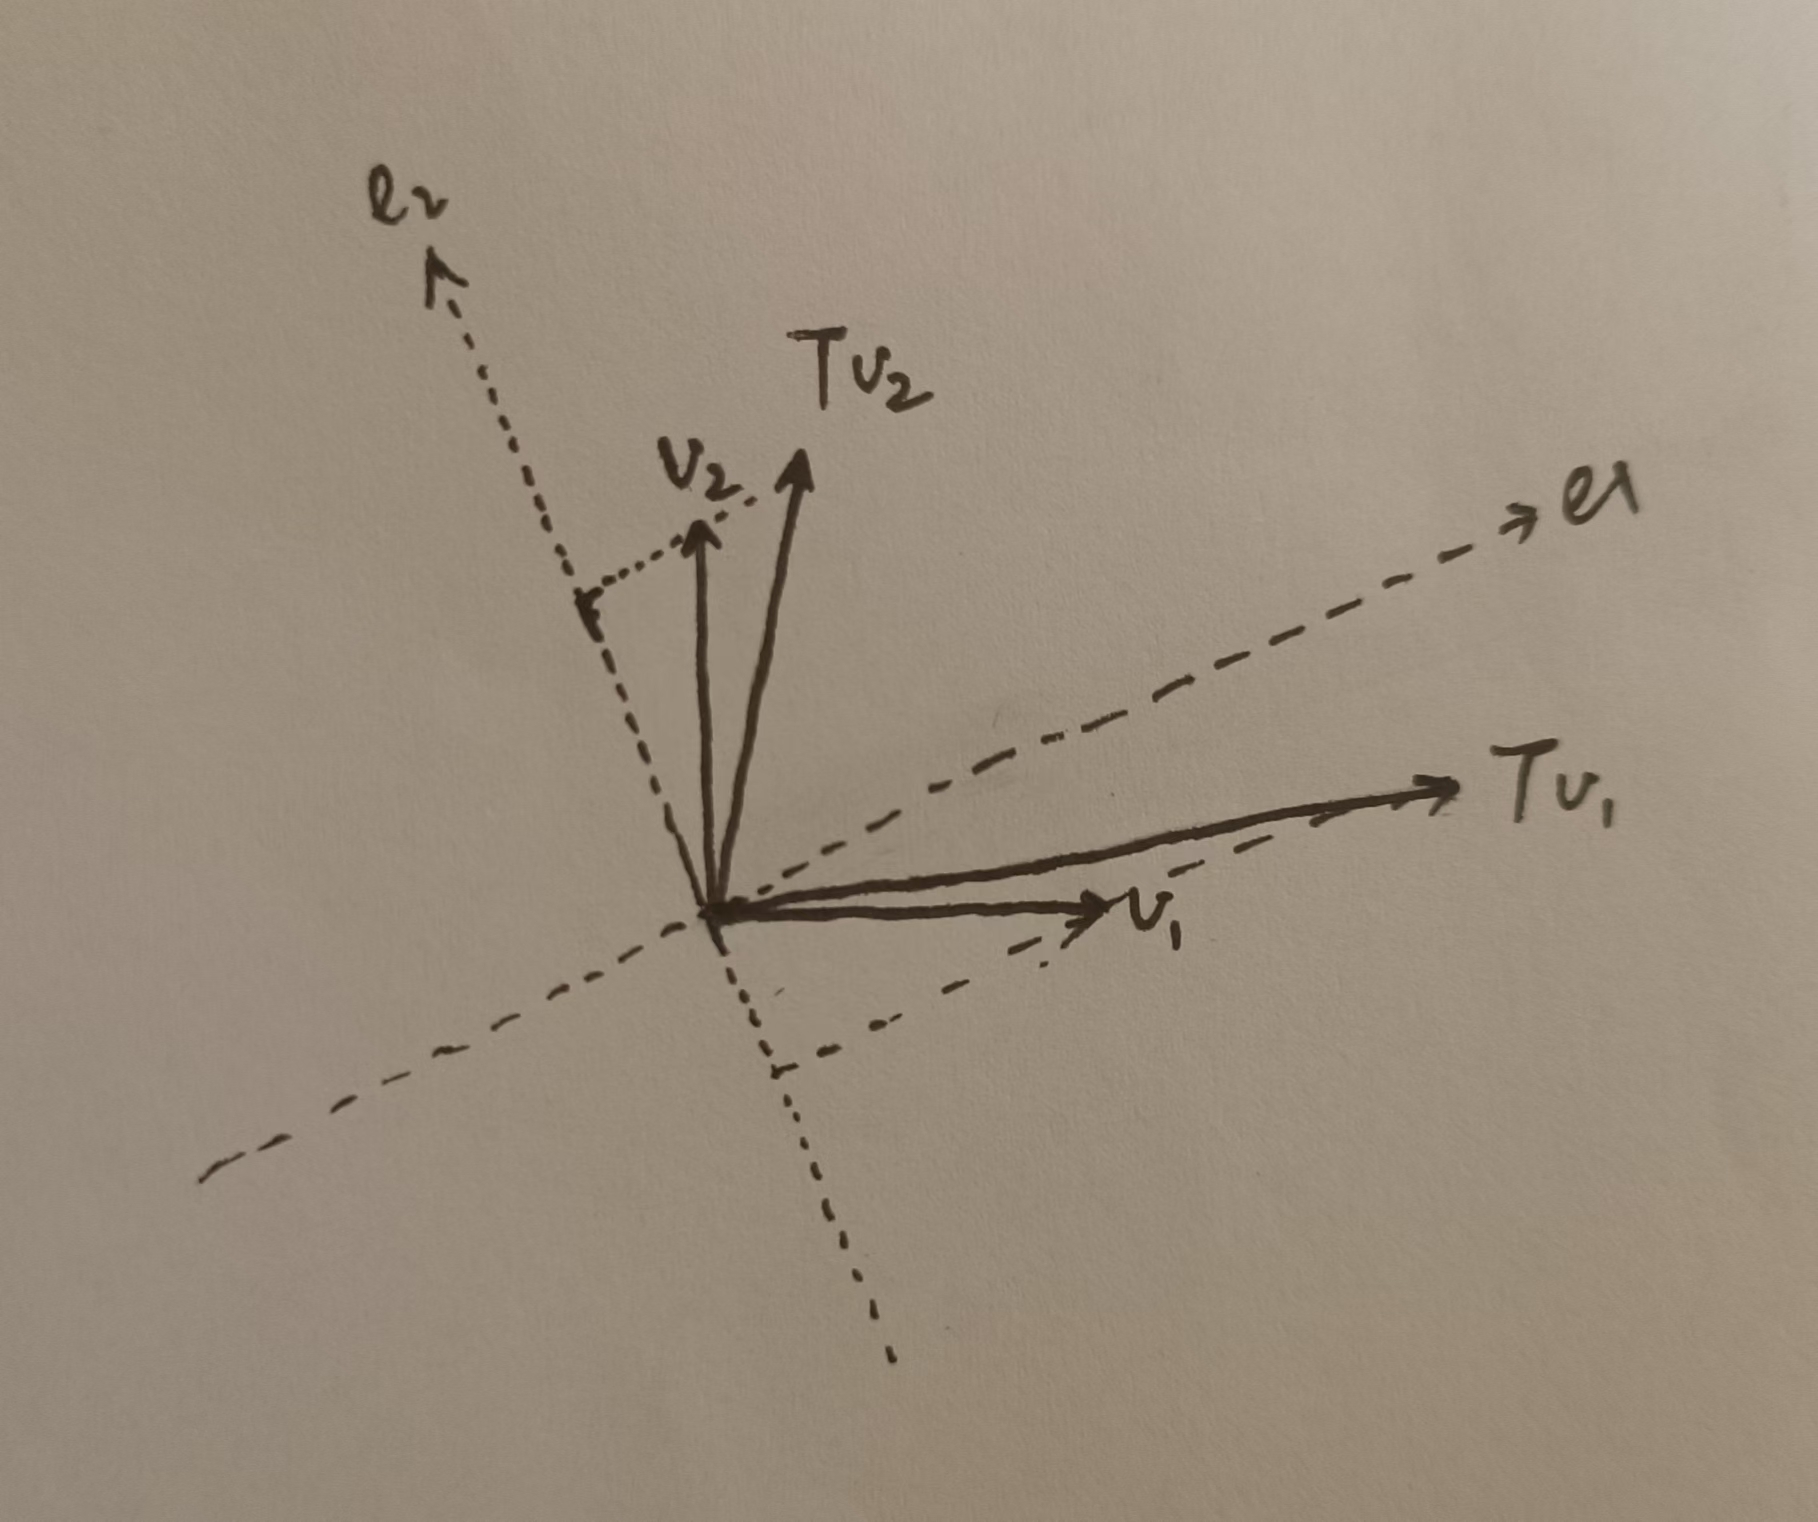 e₂
Tv₂
v₂
e1
Tv₁
v₁